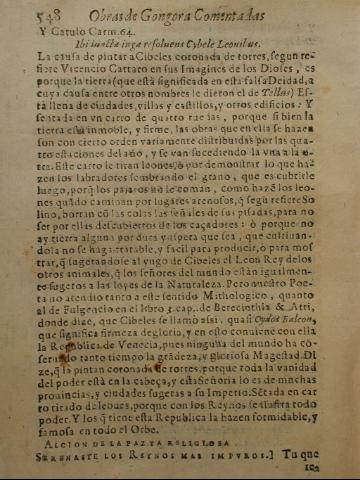 548 Obras de Gongora Comentadas
Y Catulo Carm. 64.
Ibi iuncta iuga resoluens Cybele Leonibus.
La causa de pintar a Cibeles coronada de torres, segun re-
fiere Vicencio Cattaro en sus Imagines de los Dioses, es
porque la tierra (que està significada en esta falsa Deidad, a
cuya causa entre otros nombres le dieron el de Tellus) Es-
tà llena de ciudades, villas y castillos, y otros edificios: Y
sentada en vn carro de quatro ruedas, porque si bien la
tierra està inmoble, y firme, las obras que en ella se hazen
son con cierto orden variamente distribuidas por las qua-
tro estaciones del año, y se van sucediendo la vna a la o-
tra. Este carro le tiran leones, ò por demostrar lo que ha-
zen los labradores sembrando el grano, que es cubrirle
luego, porq̃ los pajaros no le coman, como hazẽ los leo-
nes quãdo caminan por lugares arenosos, q̃ segũ refiere So
lino, borran cõ las colas las señales de sus pisadas, para no
ser por ellas descubiertos de los caçadores: ò porque no
ay tierra alguna por dura y aspera que sea, que cultiuan-
dola no se haga tratable, y facil para producir, o para mos
trar, q̃ sugetandose al yugo de Cibeles el Leon Rey de los
otros animales, q̃ los señores del mundo estàn igualmen-
te sugetos a las leyes de la Naturaleza. Pero nuestro Poe-
ta no atendio tanto a este sentido Mithologico, quanto
al de Fulgencio en el libro 3. cap. de Berecinthia & Atti,
donde dize, que Cibeles se llamò assi, quasi Cydos
que significa firmeza de gloria, y en esto conuiene con ella
la Republica de Venecia, pues ninguna del mundo ha cõ-
seruado tanto tiempo la grãdeza, y gloriosa Magestad. Di
ze, q̃ la pintan coronada de torres, porque toda la vanidad
del poder està en la cabeça, y esta Señoria lo es de muchas
prouincias, y ciudades sugetas a su Imperio. Sẽtada en car
ro tirado de leones, porque con los Reynos se ilustra todo
poder. Y los q̃ tiene esta Republica la hazen formidable, y
famosa en todo el Orbe.
ALCION DE LA PAZ YA RELIGIOSA
SERENASTE LOS REYNOS MAS IMPVROS.] Tu que